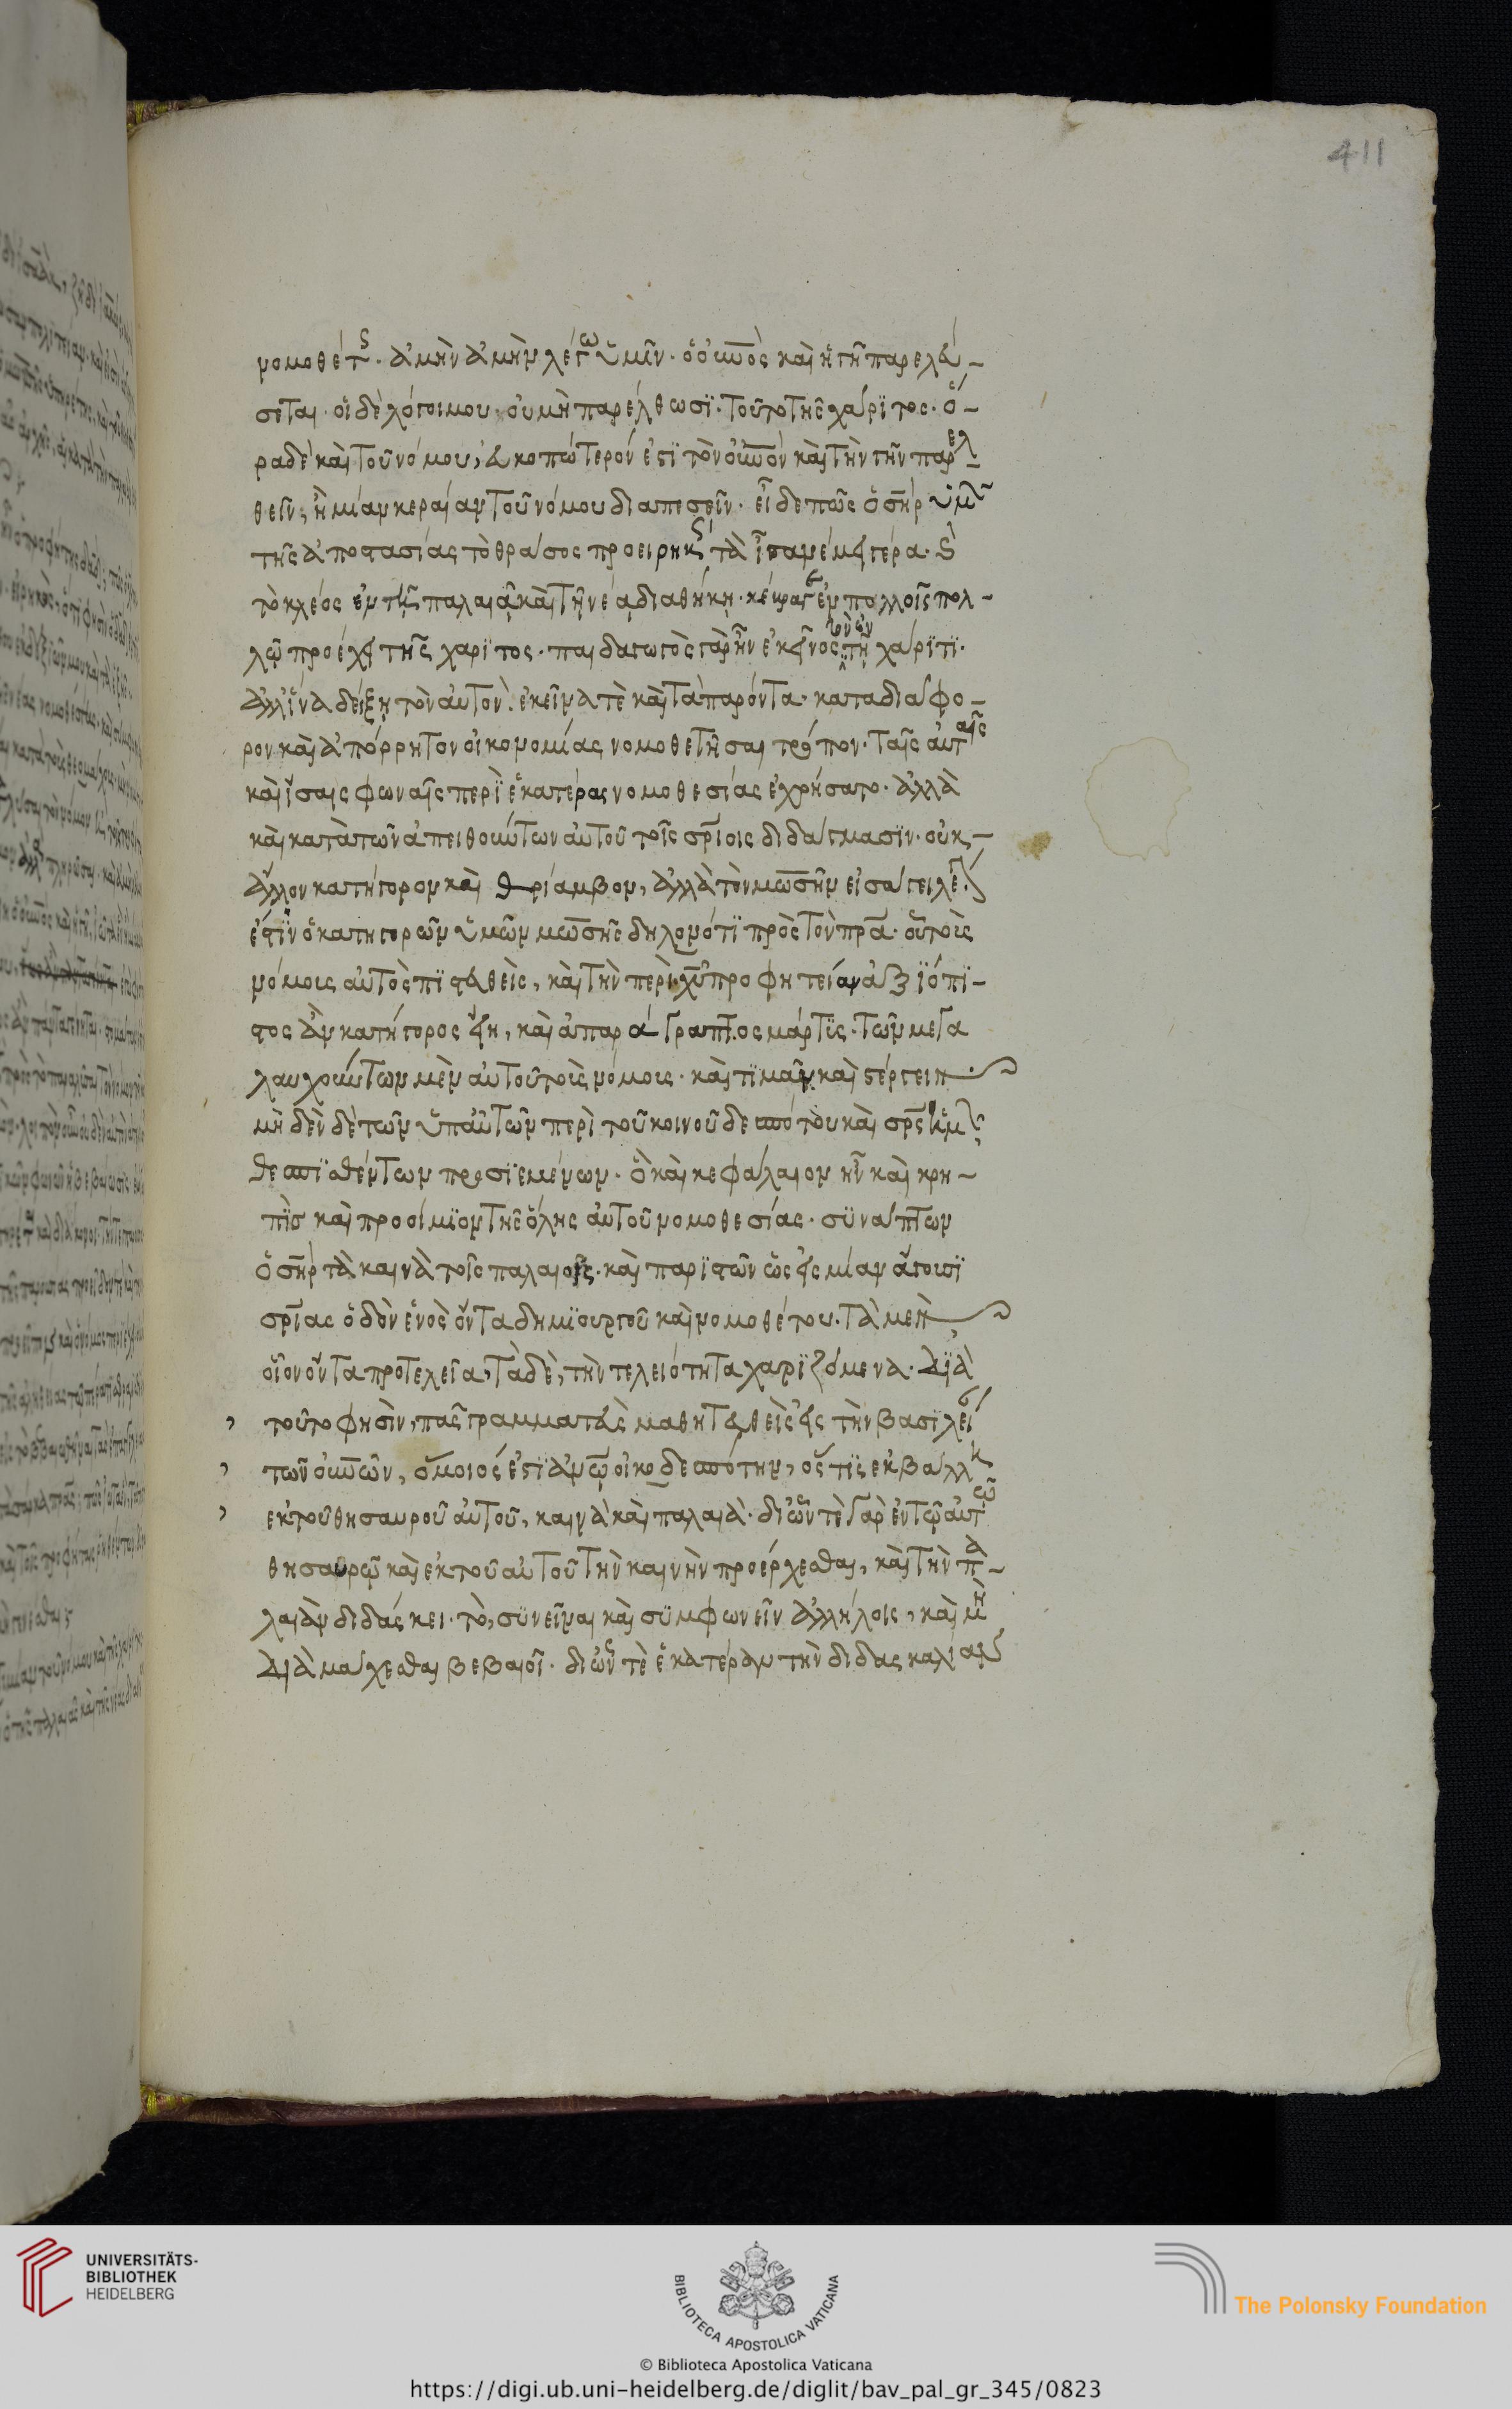 411
νομοθέτης. ἀμὴν ἀμὴν λέγω ὑμῖν. ὁ οὐνὸς καὶ ἡ γῆ παρελεύ-
σεται. οἱ δὲ λόγοι μου, οὐ μὴ παρέλθωσι. τοῦτο τῆς χάριτος. ὅ-
ρα δὲ καὶ τοῦ νόμου, εὐκοπώτερόν ἐστι τὸν οὐνὸν καὶ τὴν γῆν παρελ-
θεῖν, ἢ μίαν κεραίαν τοῦ νόμου διαπεσεῖν. εἶδε πῶς ὁ σηρ ὑμῖν
τῆς ἀποστασίας τὸ θράσος
τὸ κλέος ἐν τῇ παλαιᾷ καὶ τῇ νέᾳ διαθήκῃ. ἐν πολλοῖς πολ-
λῷ προέχει τῆς χάριτος. παιδαγωγὸς γὰρ ἦν ἐκεῖνος χάριτι.
ἀλλ' ἵνα δείξῃ τὸν αὐτὸν. ἐκεῖνα τὲ καὶ τὰ παρόντα. κατὰ διάφο-
ρον καὶ ἀπόρρητον οἰκονομίας νομοθετῆσαι τρόπον. ταῖς αὐταῖς
καὶ ἴσαις φωναῖς περὶ ἑκατέρας νομοθεσίας ἐχρήσατο. ἀλλὰ
καὶ κατὰ τῶν ἀπειθούντων αὐτοῦ τοῖς σρίοις διδάγμασιν. οὐκ-
ἄλλον κατήγορον καὶ θρίαμβον, ἀλλὰ τὸν μωσῆν εἰσάγει λέγων
ἐστὶν ὁ κατηγορῶν ὑμῶν μωσῆς δηλονότι πρὸς τὸν πρα. οὗ τοῖς
νόμοις αὐτὸς πιστευθεὶς, καὶ τὴν περὶ χυ προφητείαν ἀξιόπι-
στος ἂν κατήγορος εἴη, καὶ ἀπαράγραπτος μάρτις. τῶν μεγα
λαυχούντων μὲν αὐτοῦ τοῖς νόμοις. καὶ τιμᾶν καὶ στέργειν.
μηδὲν δὲ τῶν ὑπ' αὐτῶν περὶ τοῦ κοινοῦ δεσπότου καὶ σρς ἡμῶν
θεσπισθέντων προσιεμένων. ὃ καὶ κεφάλαιον ἦν καὶ κρη-
πὶς καὶ προοίμιον τῆς ὅλης αὐτοῦ νομοθεσίας. συνάπτων
ὁ σηρ τὰ καινὰ τοῖς παλαιοῖς. καὶ παριστῶν ὡς εἰς μίαν ἄγουσι
σρίας ὁδὸν ἑνὸς ὄντα δημιουργοῦ καὶ νομοθέτου. τὰ μὲν,
οἷον ὄντα προτελεῖα, τὰ δὲ, τὴν τελειότητα χαριζόμενα. διὰ
τοῦτο φησὶν, πᾶς γραμματεὺς μαθητευθεὶς εἰς τὴν βασιλείαν
τῶν οὐνῶν, ὅμοιός ἐστὶ ἀνω οἰκοδεσπότην, ὅς τις ἐκβάλλει
ἐκ τοῦ θησαυροῦ αὐτοῦ, καινὰ καὶ παλαιὰ. δι' ὧν τὲ γὰρ ἐν τῷ αὐτῷ
θησαυρῷ καὶ ἐκ τοῦ αὐτοῦ τὴν καινὴν προέρχεσθαι, καὶ τὴν πα-
λαιὰν διδάσκει. τὸ, συνεῖναι καὶ συμφωνεῖν ἀλλήλοις, καὶ μὴ
διαμάχεσθαι βεβαιοῖ. δι' ὧν τὲ ἑκατέραν τὴν διδασκαλίαν
UNIVERSITÄTS-
BIBLIOTHEK
HEIDELBERG
BIBLIOTECA APOSTOLICA VATICANA
The Polonsky Foundation
© Biblioteca Apostolica Vaticana
https://digi.ub.uni-heidelberg.de/diglit/bav_pal_gr_345/0823